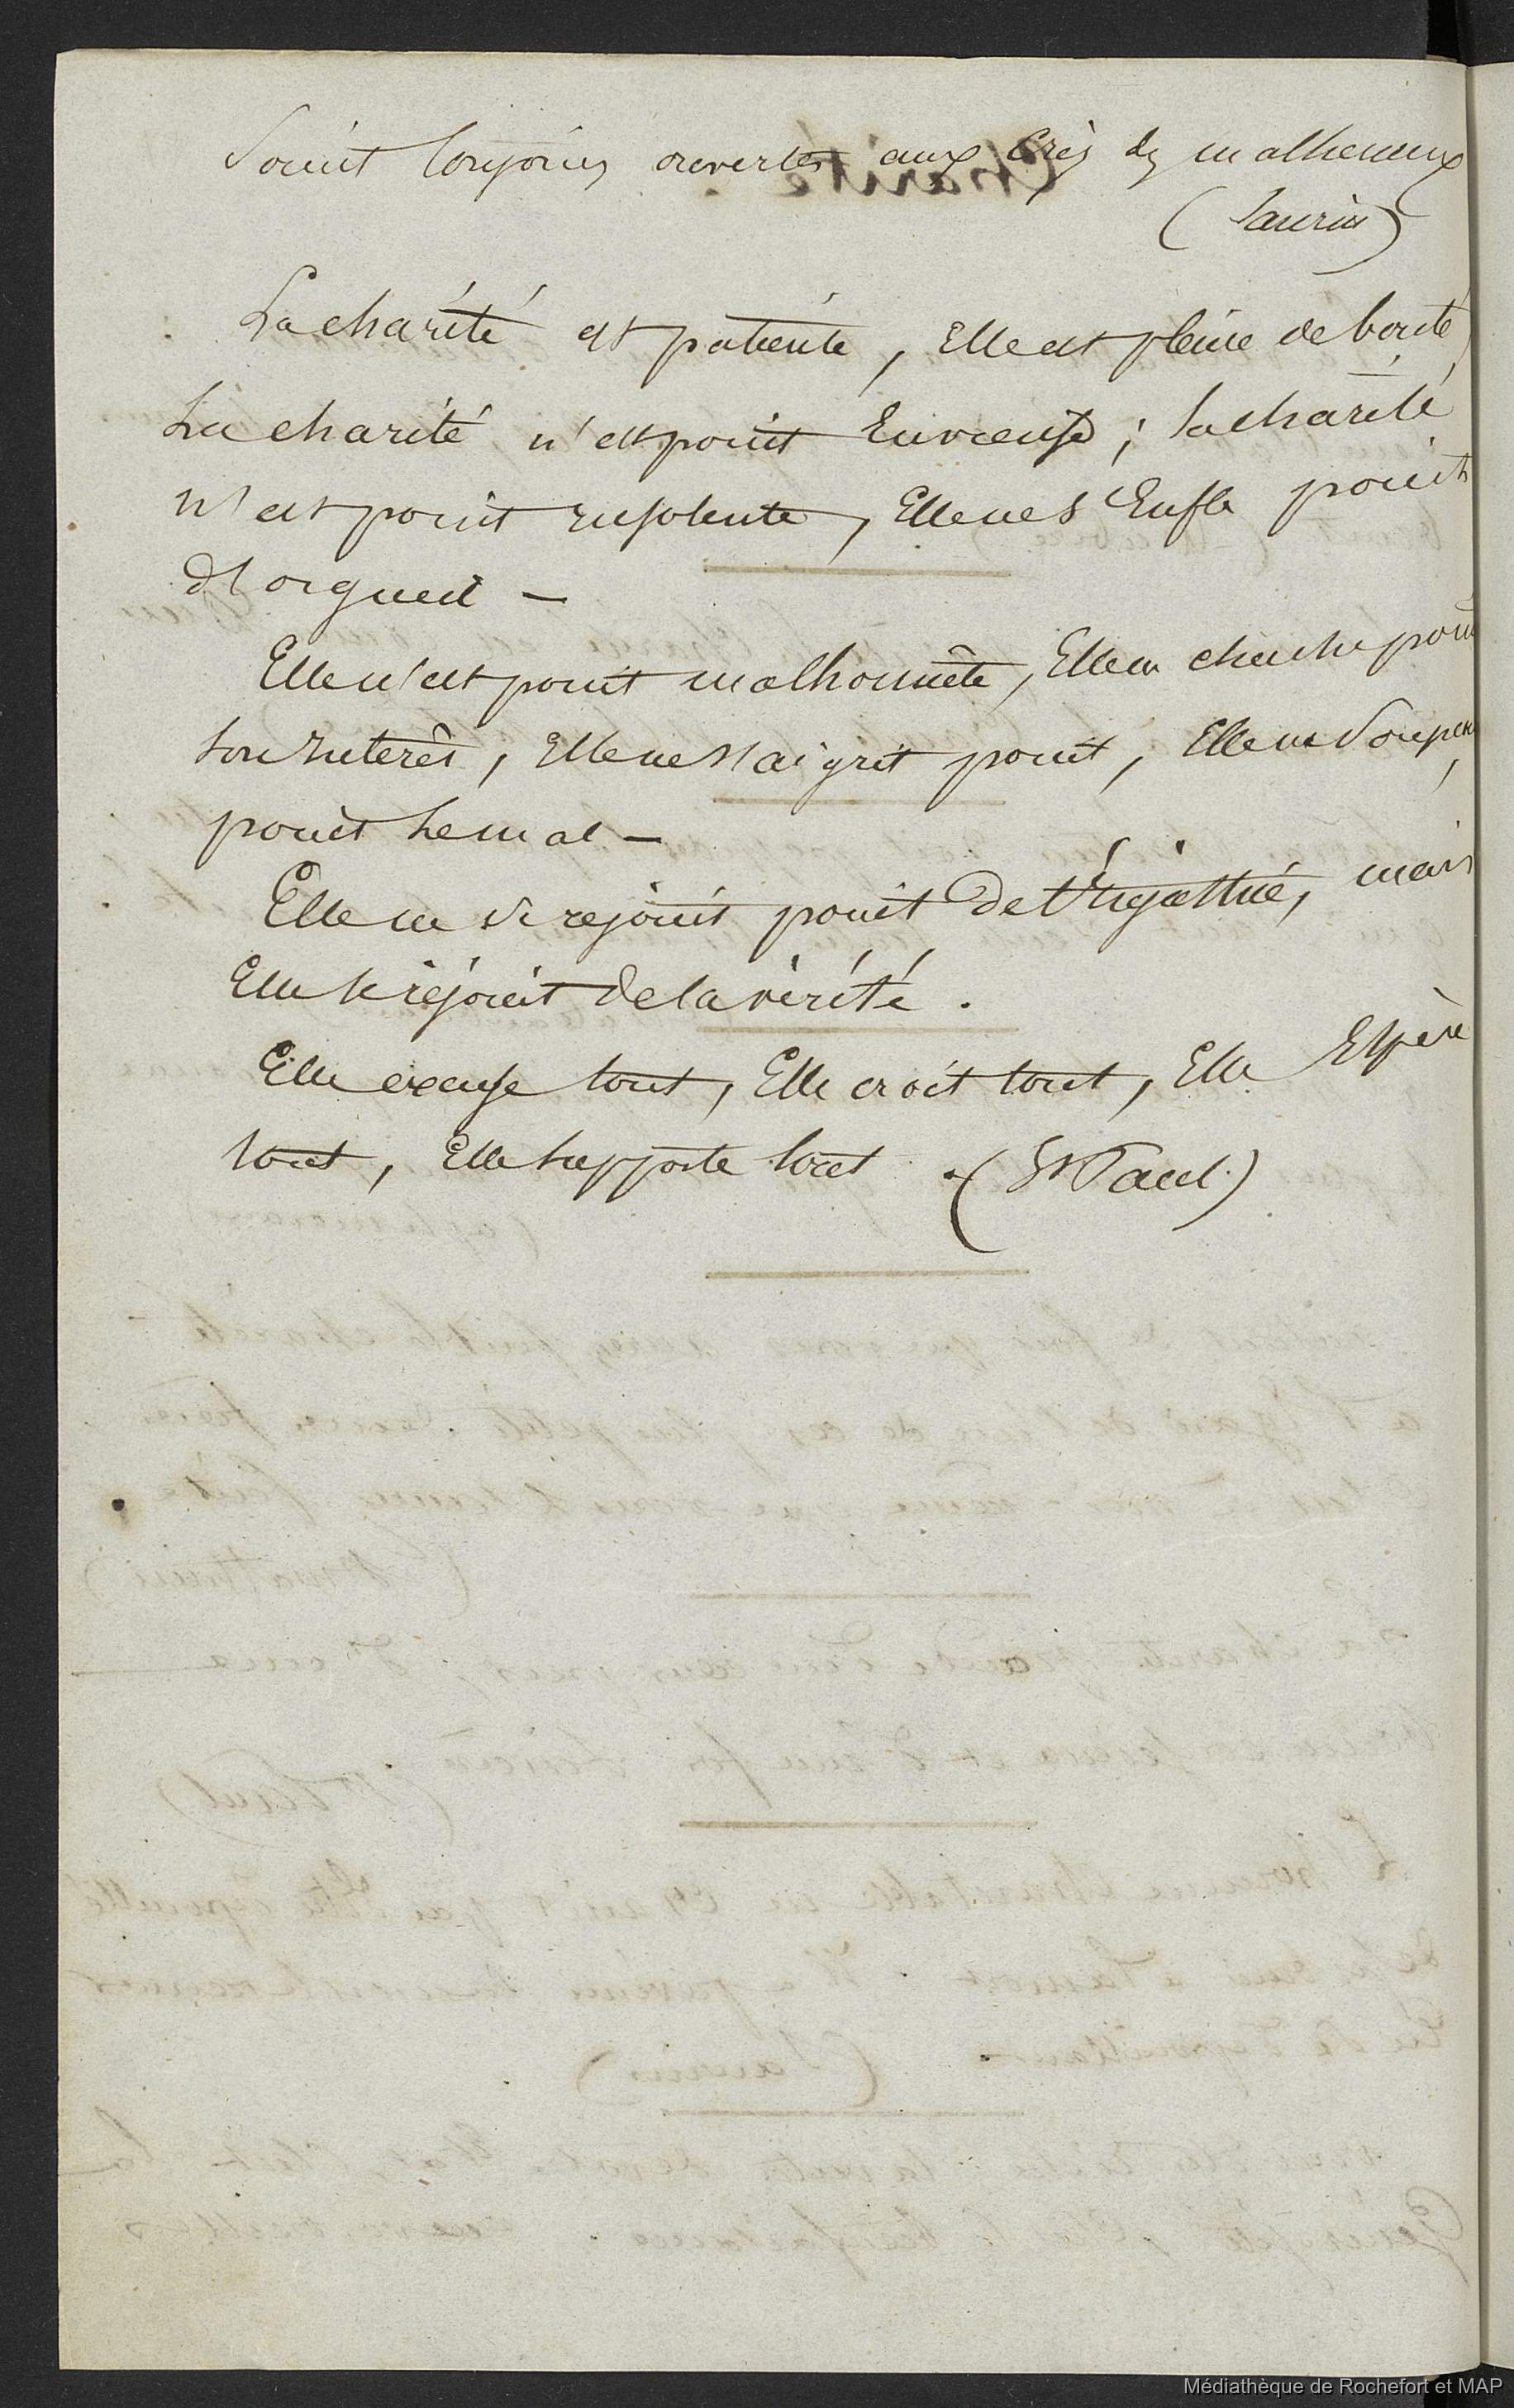 Soient toujours ouvertes aux cris des malheureux
(Saurin)
La charité est patiente, Elle est pleine de bonté,
La charité n'est point Envieuse ; la charité
n'est point insolente, Elle ne s'Enfle point
d'orgueil —
Elle n'est point malhonnête, Elle ne cherche point
son interêt, Elle ne s'aigrit point, Elle ne Soupç
point le mal —
Elle ne se rejouit point de l'injustice, mais
Elle se réjouit de la vérité .
Elle excuse tout, Elle croit tout, Elle Espère
tout, Elle supporte tout . (St Paul)
Médiathèque de Rochefort et MAP